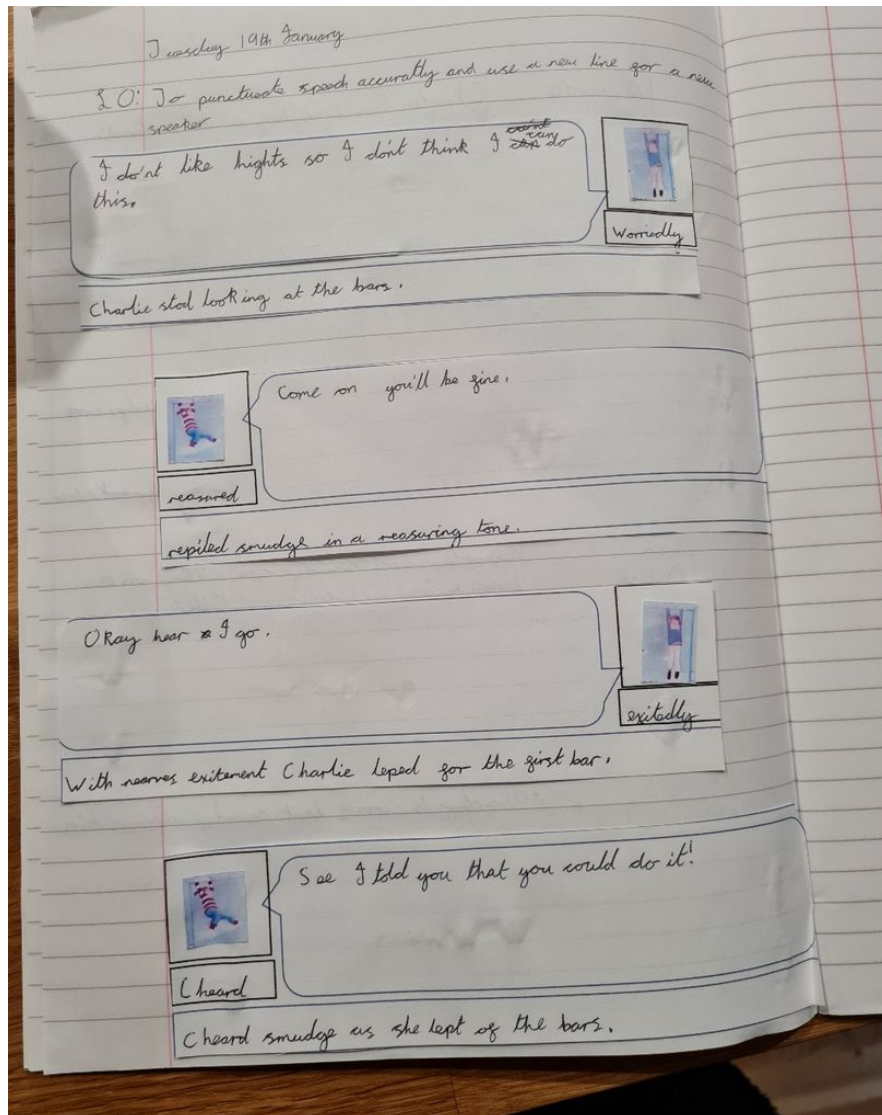 Tuesday 19th January
LO: To punctuate speech accuratly and use a new line for a new
speaker
I do'nt like hights so I dont think I can do
this.
Worriedly
Charlie stod looking at the bars.
Come on you'll be fine.
reasured
repiled smudge in a reasuring tone.
Okay hear I go.
exitedly
With nearves exitement Charlie leped for the first bar.
See I told you that you could do it!
Cheard
Cheard smudge as she lept of the bars.